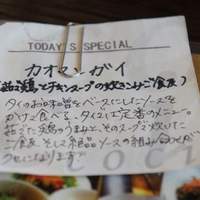 TODAY'S SPECIAL
カオマンガイ
(茹で鶏とチキンスープの炊きこみご飯)
タイのお味噌をベースにしたソースを
かけて食べる、タイでは定番のメニュー。
茹でた鶏のうまみと、そのスープで炊いた
ご飯、そして絶品ソースの組み合わせが
クセになります